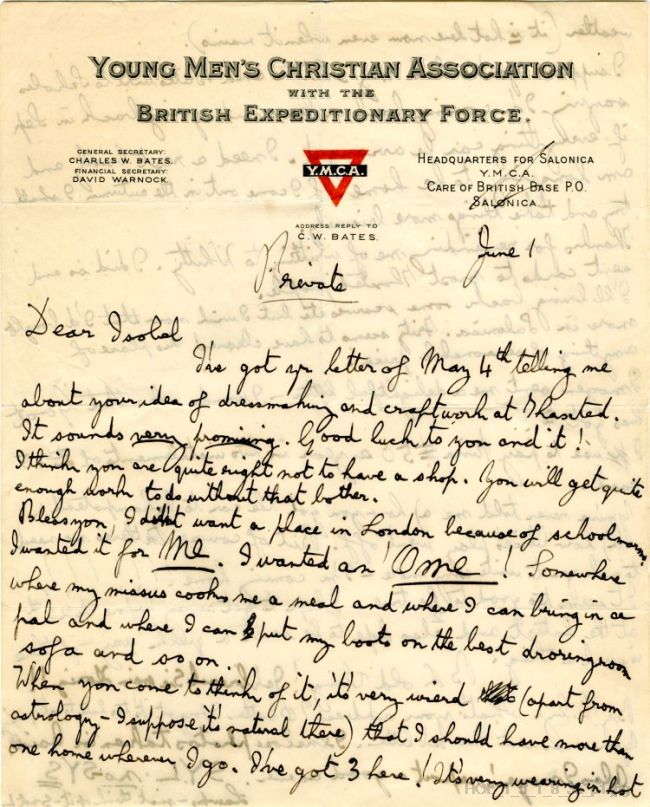 YOUNG MEN'S CHRISTIAN ASSOCIATION
WITH THE
BRITISH EXPEDITIONARY FORCE.
GENERAL SECRETARY:
CHARLES W. BATES.
FINANCIAL SECRETARY:
DAVID WARNOCK.
Y.M.C.A.
HEADQUARTERS FOR SALONICA
Y.M.C.A.
CARE OF BRITISH BASE P.O.
SALONICA
ADDRESS REPLY TO
C.W. BATES.
June 1
Private
Dear Isobel
I've got yr letter of May 4th telling me
about your idea of dressmaking and craftwork at Thaxted.
It sounds very promising. Good luck to you and it!
I think you are quite right not to have a shop. You will get quite
enough work to do without that bother.
Bless you, I didn't want a place in London because of schoolmarms.
I wanted it for ME. I wanted an 'Ome! Somewhere
where my missus cooks me a meal and where I can bring in a
pal and where I can put my boots on the best droringroom
sofa and so on.
When you come to think of it, it's very wierd (apart from
astrology - I suppose it's natural there) that I should have more than
one home wherever I go. I've got 3 here! It's very wearing in hot